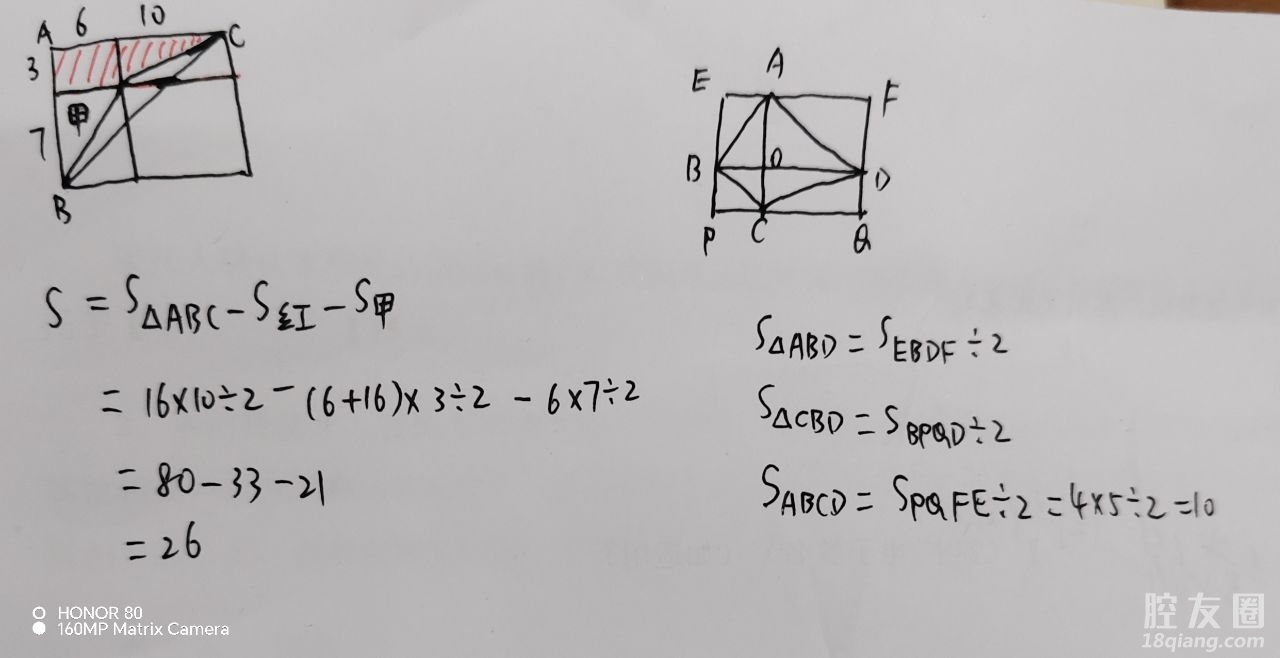 6 10
A C
3
甲
7
B
S = S△ABC - S红 - S甲
= 16×10÷2 - (6+16)×3÷2 - 6×7÷2
= 80-33-21
= 26
E A F
B O D
P C Q
S△ABD = SEBDF÷2
S△CBD = SBPQD÷2
SABCD = SPQFE÷2 = 4×5÷2 = 10
HONOR 80
160MP Matrix Camera
腔友圈
18qiang.com